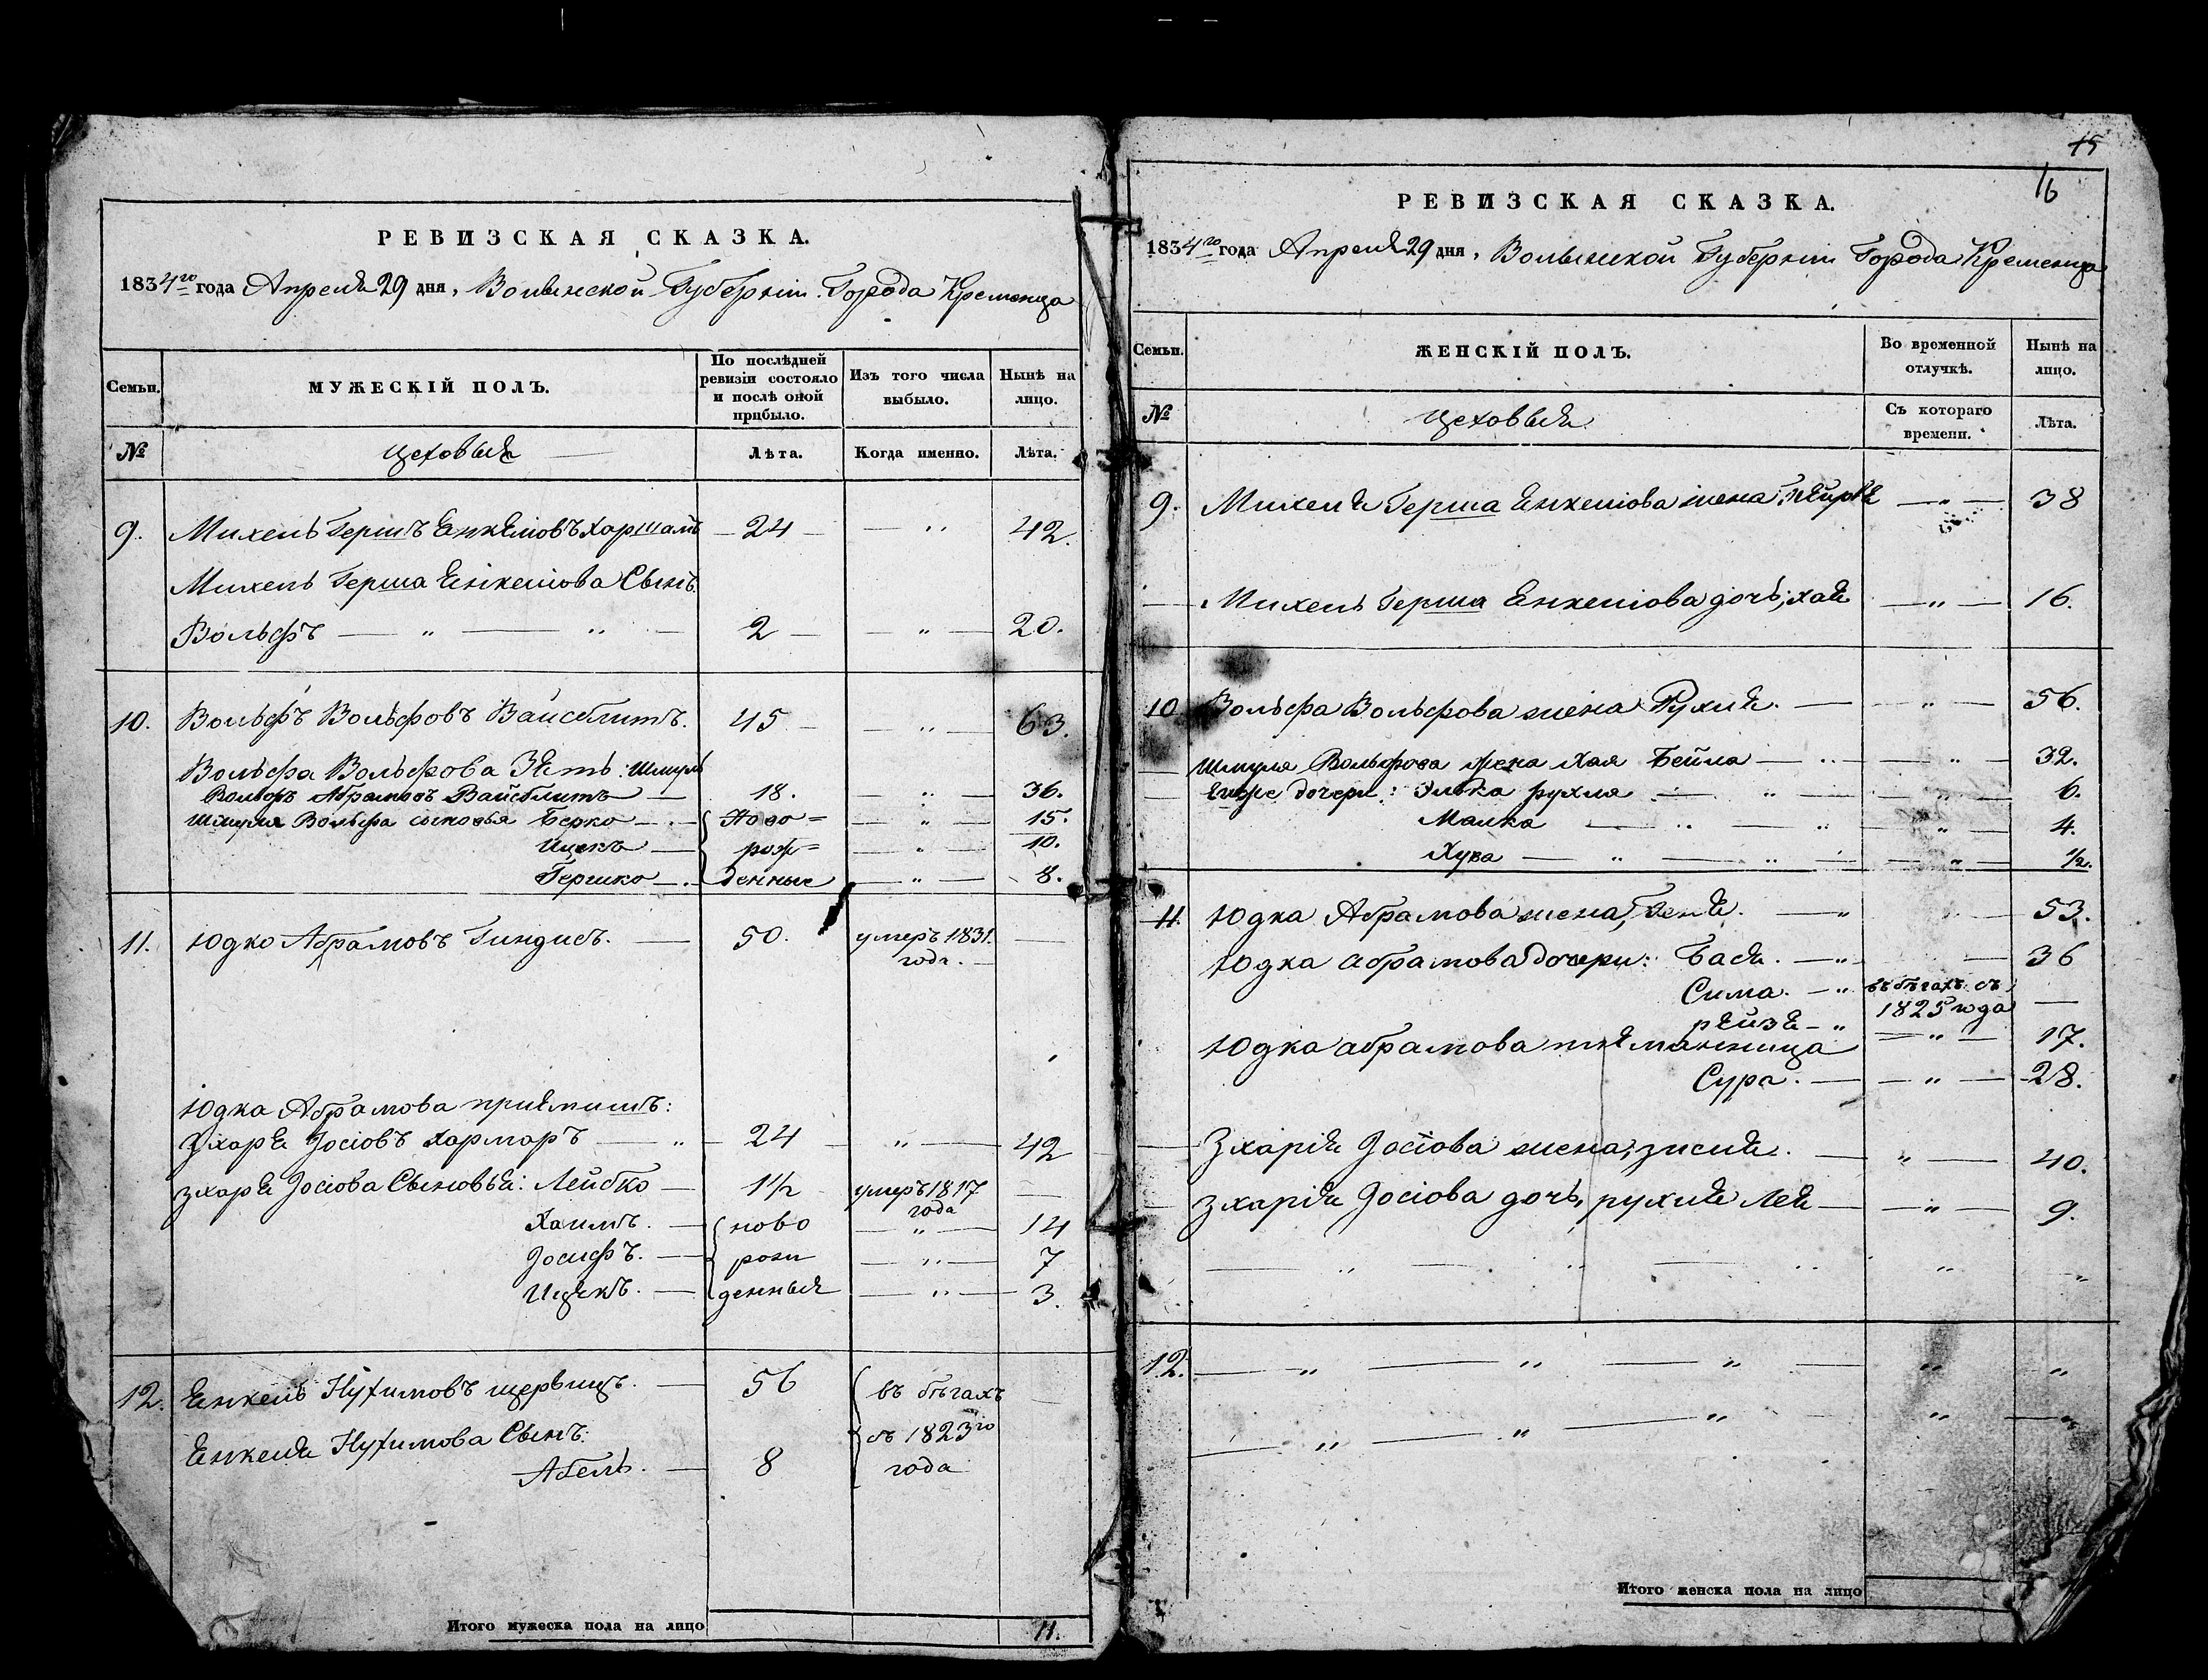 15
16
РЕВИЗСКАЯ СКАЗКА.
1834го года Апреля 29 дня, Волынской Губернiи Города Кременца
Семьи. МУЖЕСКIЙ ПОЛЪ. По послѣдней ревизiи состояло и послѣ оной прибыло. Изъ того числа выбыло. Нынѣ на лицо.
№ цеховыя Лѣта. Когда именно. Лѣта.
9. Михель Гершъ Енкелiовъ — 24 — „ 42.
Михель Герша Енкелiова Сынъ
Вольфъ — „ — „ — 2 — — „ — 20.
10. Вольфъ Вольфовъ Вайсблитъ. 45 — — „ — 63.
Вольфа Вольфова Зять: Шмуль
Вольфъ Абрамовъ Вайсблитъ — 18. — „ — 36.
Шмуля Вольфа сыновья Берко — Ново= — „ — 15.
Ицекъ — рож= — „ — 10.
Гершко — денные — „ — 8.
11. Юдко Абрамовъ Гиндисъ. — 50. умеръ 1831.
года. —
Юдка Абрамова прiемишъ:
Зхаря Iосiовъ Хармаръ — „ — 24 — „ — 42
Зхаря Iосiова Сыновья: Лейбко — 1½ умеръ 1817 —
года
Хаимъ. — ново — „ — 14
Iосифъ. — рож — „ — 7
Ицекъ. — денныя — „ — 3.
12. Енкель Нухимовъ — 56 въ бѣгахъ —
Енкеля Нухимова Сынъ: съ 1823го
Абель. — 8 года
Итого мужеска пола на лицо 11.
РЕВИЗСКАЯ СКАЗКА.
1834го года Апреля 29 дня, Волынской Губернiи Города Кременца
Семьи. ЖЕНСКIЙ ПОЛЪ. Во временной отлучкѣ. Нынѣ на лицо.
№ цеховыя Съ котораго времени. Лѣта.
9. Михеля Герша Енкелiова жена — „ — 38
Михель Герша Енкелiова дочь; хая — „ — 16.
10 Вольфа Вольфова жена Рухля. — — „ — 56.
Шмуля Вольфова жена Хая Бейла — „ — — „ — 32.
Ензре дочери: Элька рухля — „ — — „ — 6.
Малка — „ — „ — „ — 4.
Хува — „ — „ — — „ — ½.
11. Юдка Абрамова жена, Геня. — „ — 53.
Юдка абрамова дочери: Бася. — „ — 36
Сима. — „ въ бѣгахъ съ
1825 года —
рейзя — „ — „ — 17.
Юдка абрамова племянница
Сура. — — „ — 28.
Зхарiя Iосiова жена; зисля. — „ — 40.
Зхарiя Iосiова дочь, рухля Лея — — „ — 9.
— „ — „ — „ „ „
12. — „ — „ — „ — „ „
— „ — „ — „ — „ — „
Итого женска пола на лицо